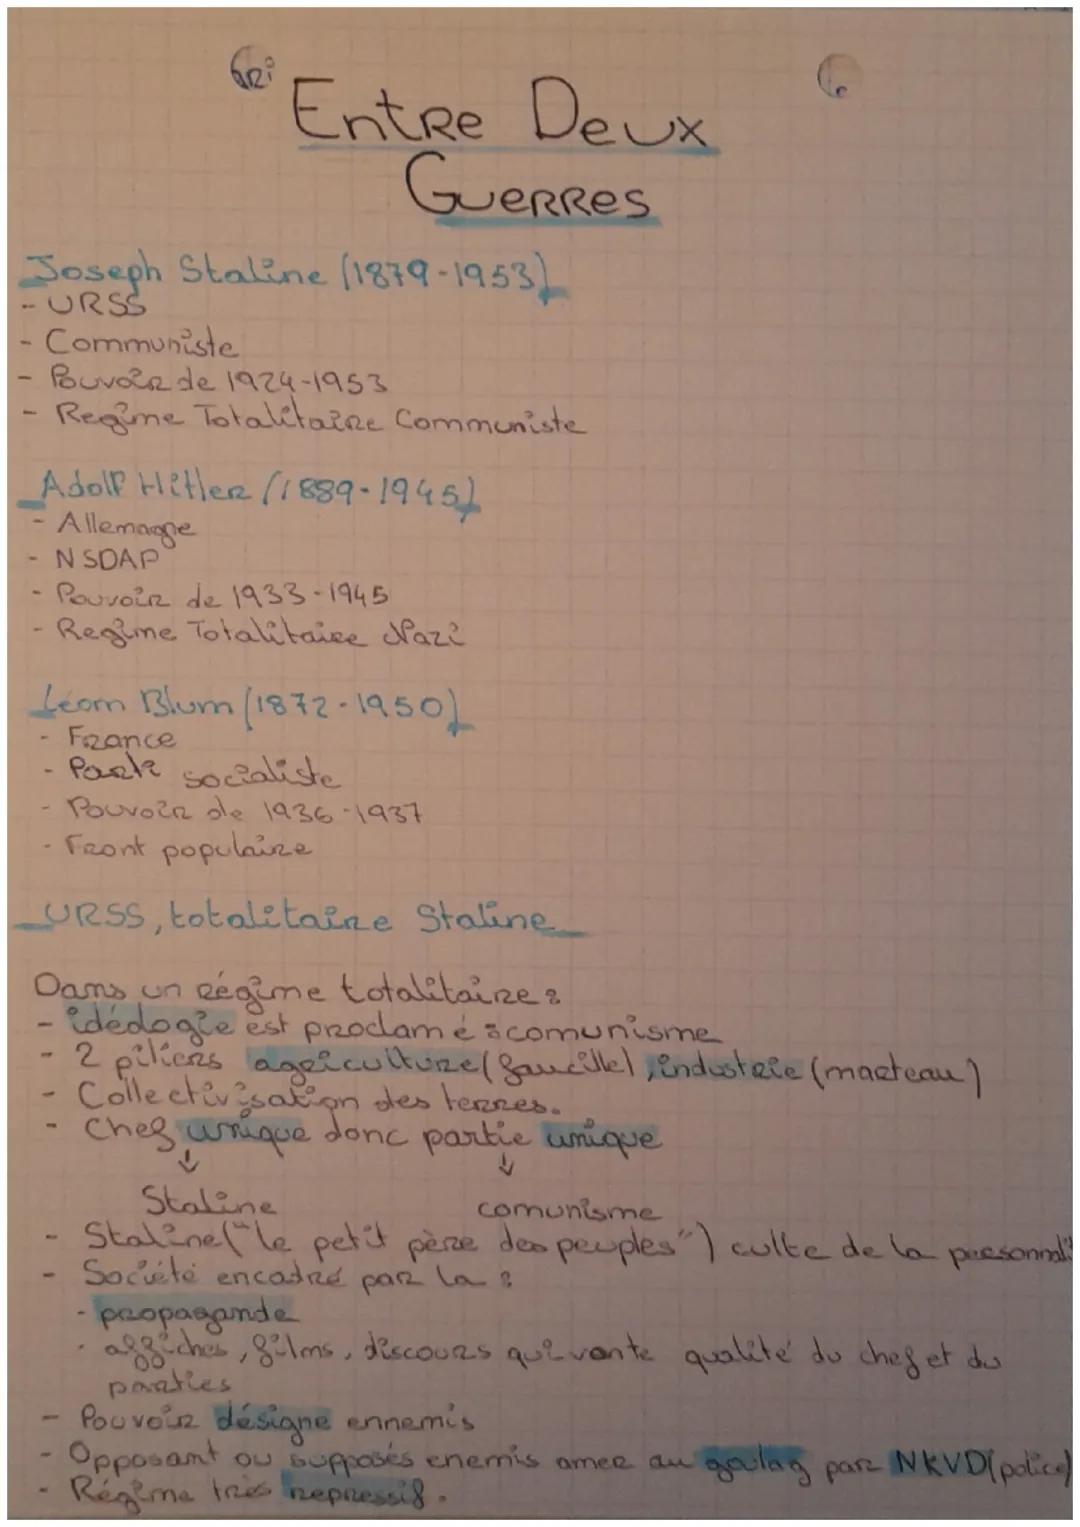 Entre Deux
Guerres
Joseph Staline (1879-1953)
- URSS
- Communiste
- Pouvoir de 1924-1953
- Regime Totalitaire Communiste
Adolf Hitler (1889-1945)
- Allemagne
- NSDAP
- Pouvoir de 1933-1945
- Regime Totalitaire Nazi
Léon Blum (1872-1950)
- France
- Parti socialiste
- Pouvoir de 1936-1937
- Front populaire
URSS, totalitaire Staline
Dans un régime totalitaire :
- idéologie est proclamé : comunisme
- 2 piliers agriculture (faucille), industrie (marteau)
- Collectivisation des terres.
- Chef unique donc partie unique
↓ ↓
Staline comunisme
- Staline ("le petit père des peuples") culte de la personnali
- Société encadré par la :
- propagande
- affiches, films, discours qui vante qualité du chef et du
parties
- Pouvoir désigne ennemis
- Opposant ou supposés enemis amer au goulag par NKVD (police)
- Régime très repressif.